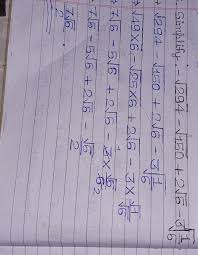 Simplify:- √294 - √150 + 2√6 - 3√1/6
√294 - √150 + 2√6 - 3√1/6
√49×6 - √25×6 + 2√6 - 3×√1/√6
7√6 - 5√6 + 2√6 - 3×√6/6 2
7√6 - 5√6 + 2√6 √6/2
7√6